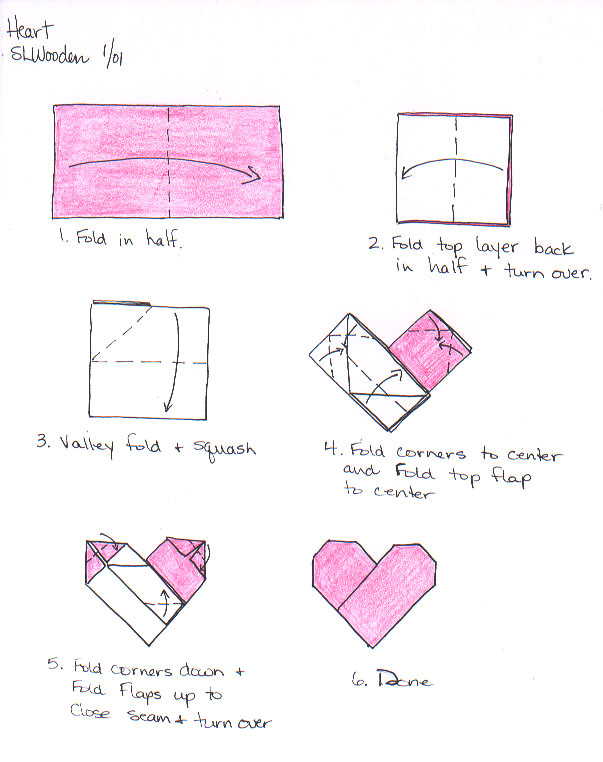 Heart
SLWooden 1/01
1. Fold in half.
2. Fold top layer back
in half + turn over.
3. Valley fold + squash
4. Fold corners to center
and Fold top flap
to center
5. Fold corners down +
Fold Flaps up to
Close seam + turn over
6. Done